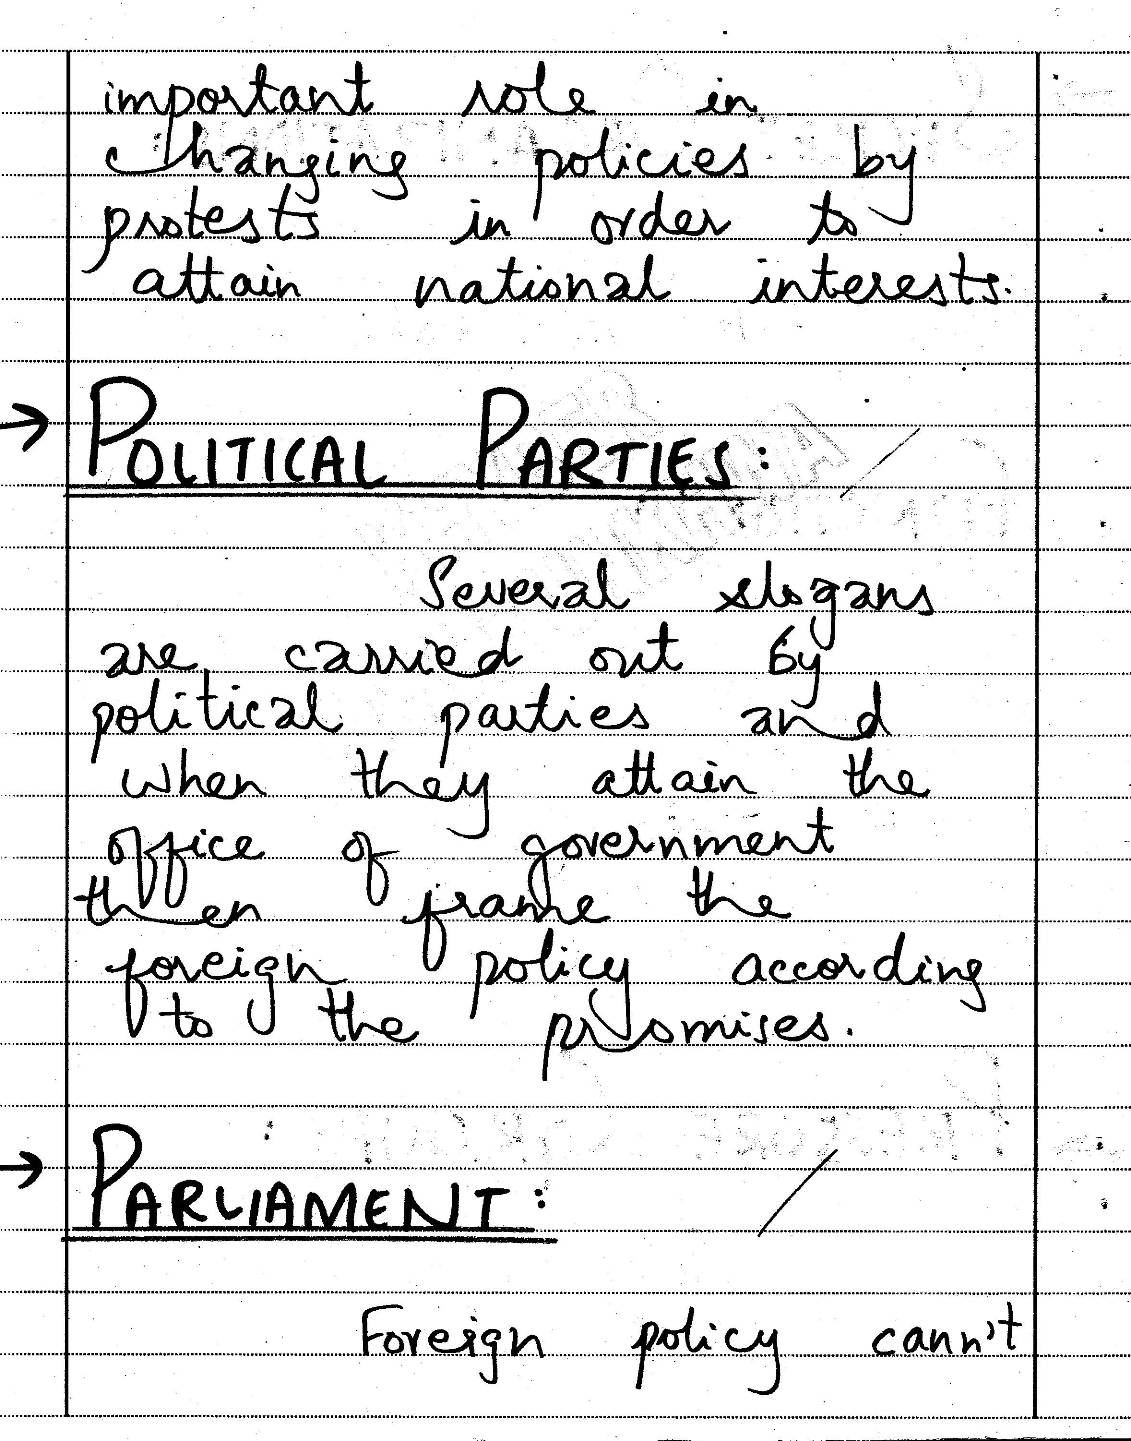 important role in
changing policies by
protests in order to
attain national interests.
→ POLITICAL PARTIES:
Several slogans
are carried out by
political parties and
when they attain the
office of government
then frame the
foreign policy according
to the promises.
→ PARLIAMENT:
Foreign policy cann't